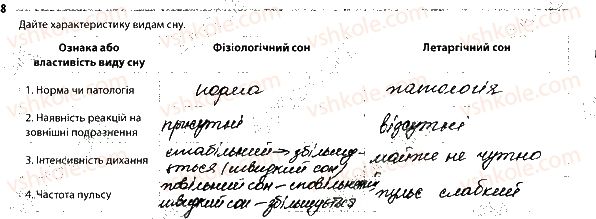 8
Дайте характеристику видам сну.
Ознака або властивість виду сну
Фізіологічний сон
Летаргічний сон
1. Норма чи патологія
норма
патологія
2. Наявність реакцій на зовнішні подразнення
присутні
відсутні
3. Інтенсивність дихання
стабільний → збільшується (швидкий сон)
майже не чутно
4. Частота пульсу
повільний сон – сповільнений
швидкий сон – збільшується
пульс слабкий
vshkole.com